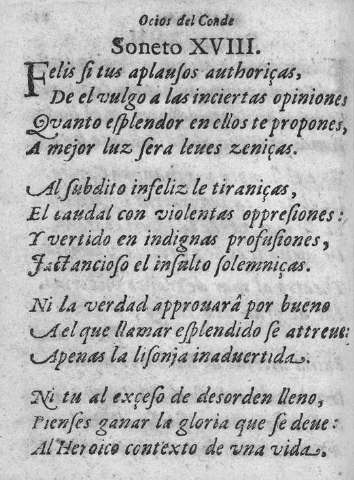 Ocios del Conde
Soneto XVIII.
Felis ſi tus aplauſos authoriças,
De el vulgo a las inciertas opiniones
Quanto eſplendor en ellos te propones,
A mejor luz ſera leues zeniças.
Al ſubdito infeliz le tiraniças,
El caudal con violentas oppreſiones:
Y vertido en indignas profuſiones,
Jactancioso el inſulto ſolemniças.
Ni la verdad approuarâ por bueno
A el que llamar eſplendido ſe attreue:
Apenas la liſonja inaduertida.
Ni tu al exçeſo de desorden lleno,
Pienſes ganar la gloria que ſe deue:
Al Heroico contexto de vna vida.